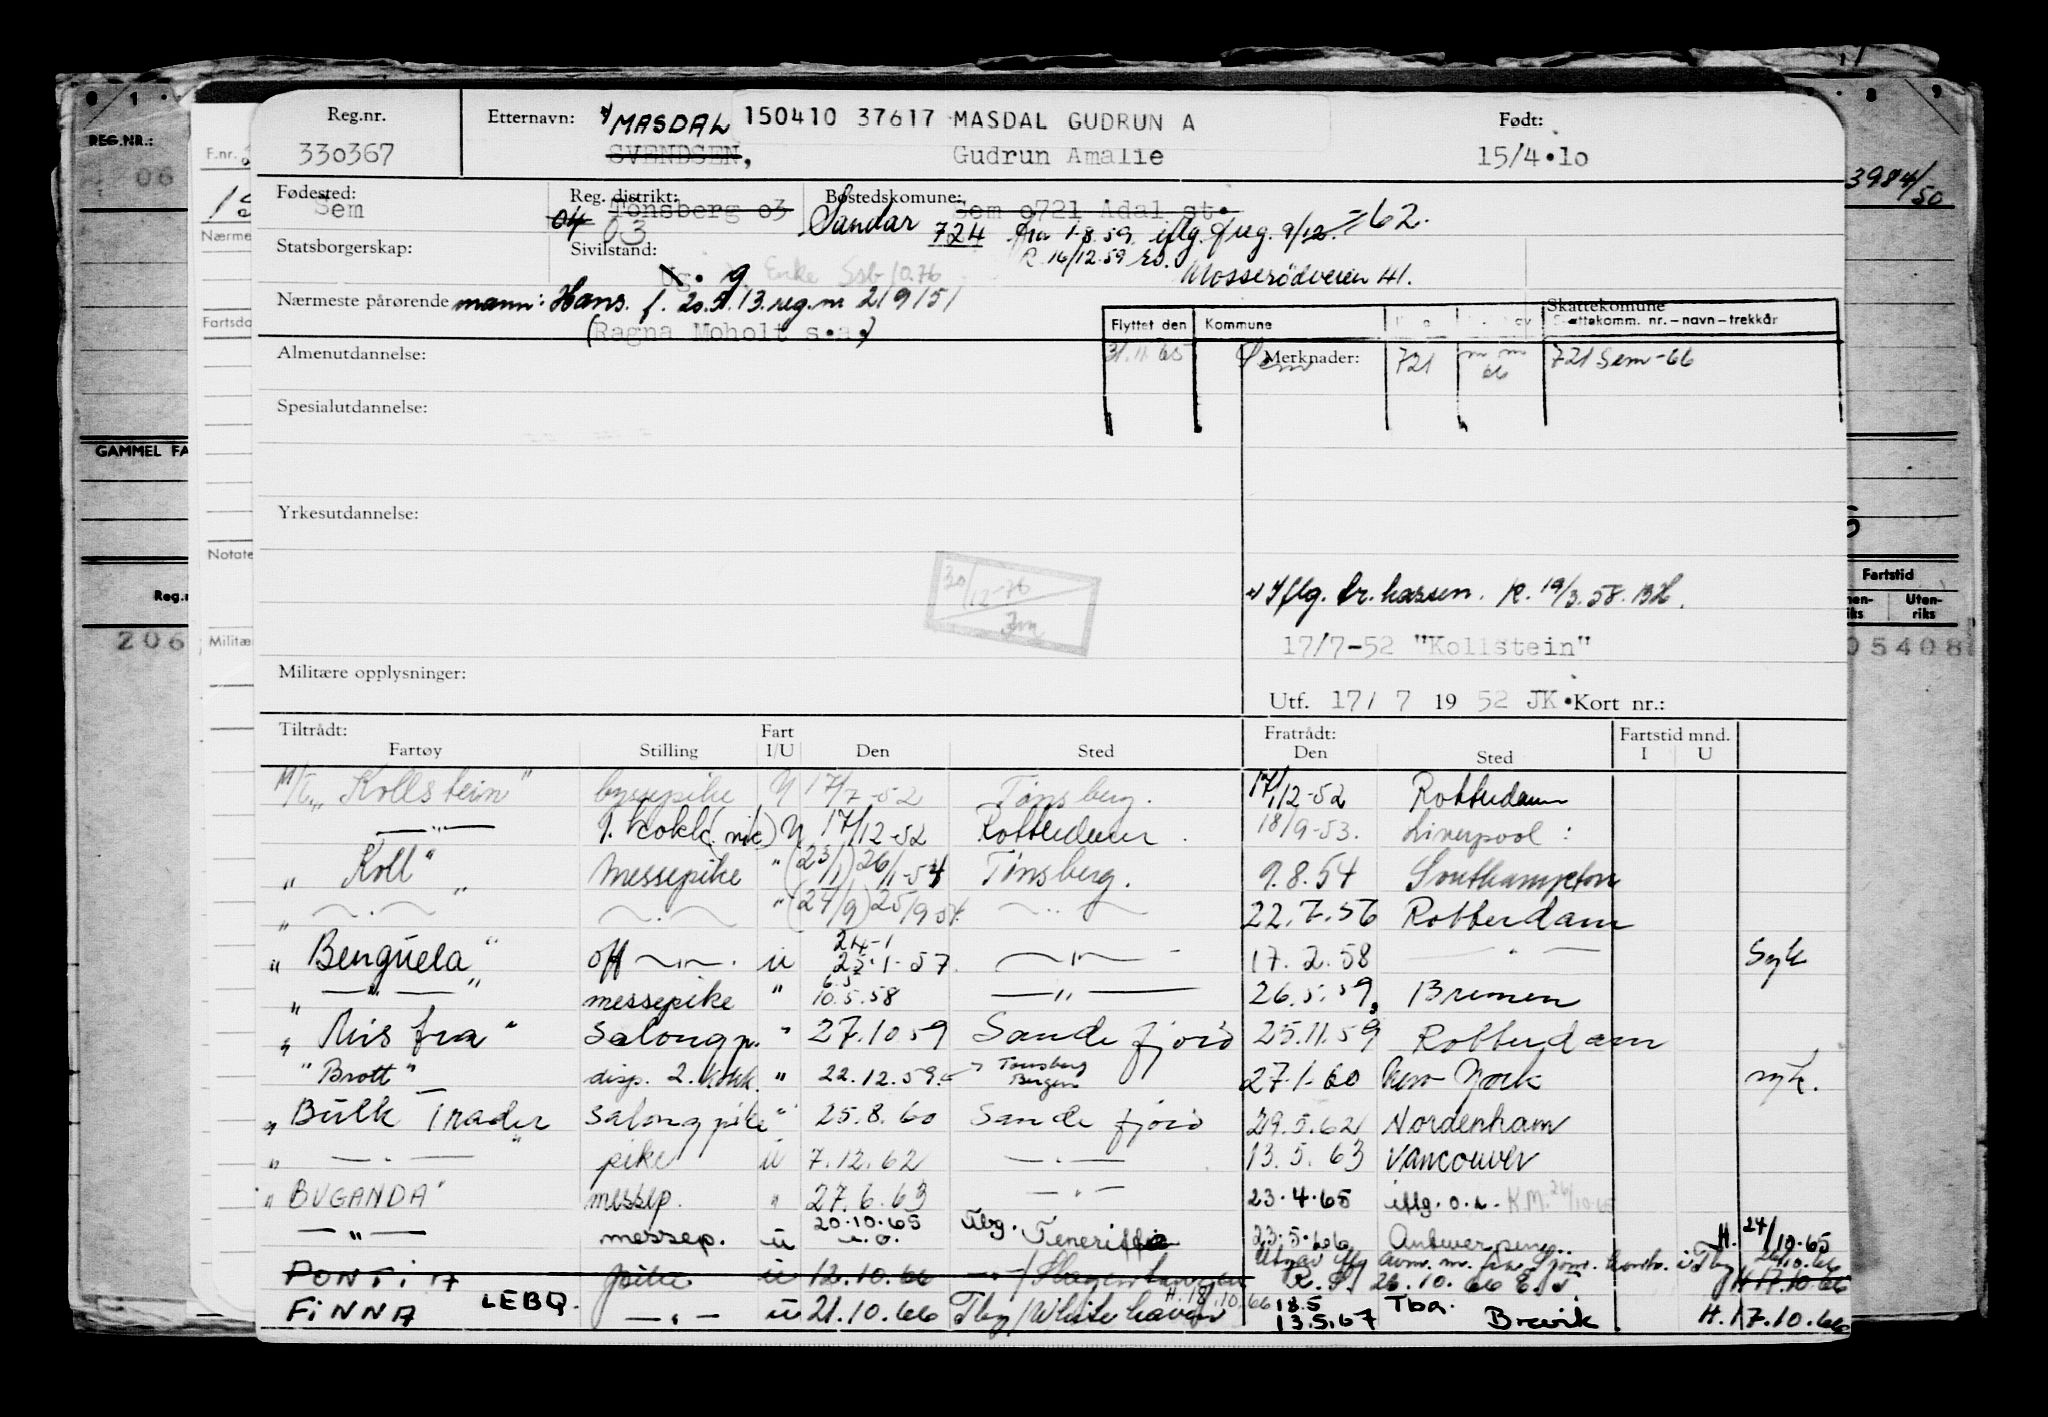 Reg.nr. Etternavn: MASDAL 150410 37617 MASDAL GUDRUN A Født:
330367 SVENDSEN, Gudrun Amalie 15/4.10
Fødested: Sem Reg. distrikt: Tønsberg 03 Bostedskomune: Sem 0721 Adal st.
04 03 Sandar 724 fra 1.8.59 iflg. 9/12 = 62.
R. 16/12.59
Mosserødveien 41.
Statsborgerskap: Sivilstand: Ug. g Enke Ssb 10.76
Nærmeste pårørende mann: Hans. f. 20. 13. reg. nr 219151
(Ragna Moholt s.a.)
Skattekomune
Flyttet den Kommune Skattekomm. nr. – navn – trekkår
31.11.65 Sem 721 66 721 Sem -66
Almenutdannelse: Merknader:
Spesialutdannelse:
Yrkesutdannelse:
30/12-76
x) Iflg. R. 19/3.58. BH.
17/7-52 "Kollstein"
Militære opplysninger:
Utf. 17/ 7 19 52 JK. Kort nr.:
Tiltrådt: Fart Fratrådt: Fartstid mnd.
Fartøy Stilling I/U Den Sted Den Sted I U
M/T "Kollstein" byssepike U 17/7-52 Tønsberg. 17/12-52 Rotterdam
— " — 1. kokk U 17/12-52 Rotterdam 18/9-53. Liverpool
" Koll" Messepike " (23/1) 26/1-54 Tønsberg. 9.8.54 Southampton
" — " — — " — " (24/9) 25/9 54 — " — 22.7.56 Rotterdam
" Benguela" off — " — u 24-1 25.1-57 — " — 17.2.58 — " — Syk
" — " — messepike " 6.5 10.5.58 — " — 26.5.59 Bremen
" Risfra" Salongp. " 27.10 59 Sandefjord 25.11.59 Rotterdam
" Brott" disp. 2. kokk " 22.12.59. Tønsberg Bergen 27.1-60 New York syk.
" Bulk Trader" Salongpike " 25.8.60 Sandefjord 29.5.62 Nordenham
" — " — pike u 7.12.62 — " — 13.5.63 Vancouver
" BUGANDA" messep. " 27.6.63 — " — 23.4.65 iflg. o.l. K.M. 26/10-65
— " — messep. u 20.10.65 Tbg. Teneriffa 23.5.66 Antwerpen H. 24/10.65
PONTi pike u 12.10.66 R. 26.10.66 H 17.10.66
FiNNA LEBQ — " — u 21.10.66 Tbg/Whitehaven H. 18.10.66 18.5 13.5.67 Tbg. Brevik H. 17.10.66
REG.NR.:
F.nr.
Nærme
Fartsda
GAMMEL FA
Notate
Reg.n
206
Militæ
3984/50
Fartstid
Uten-
riks
05408